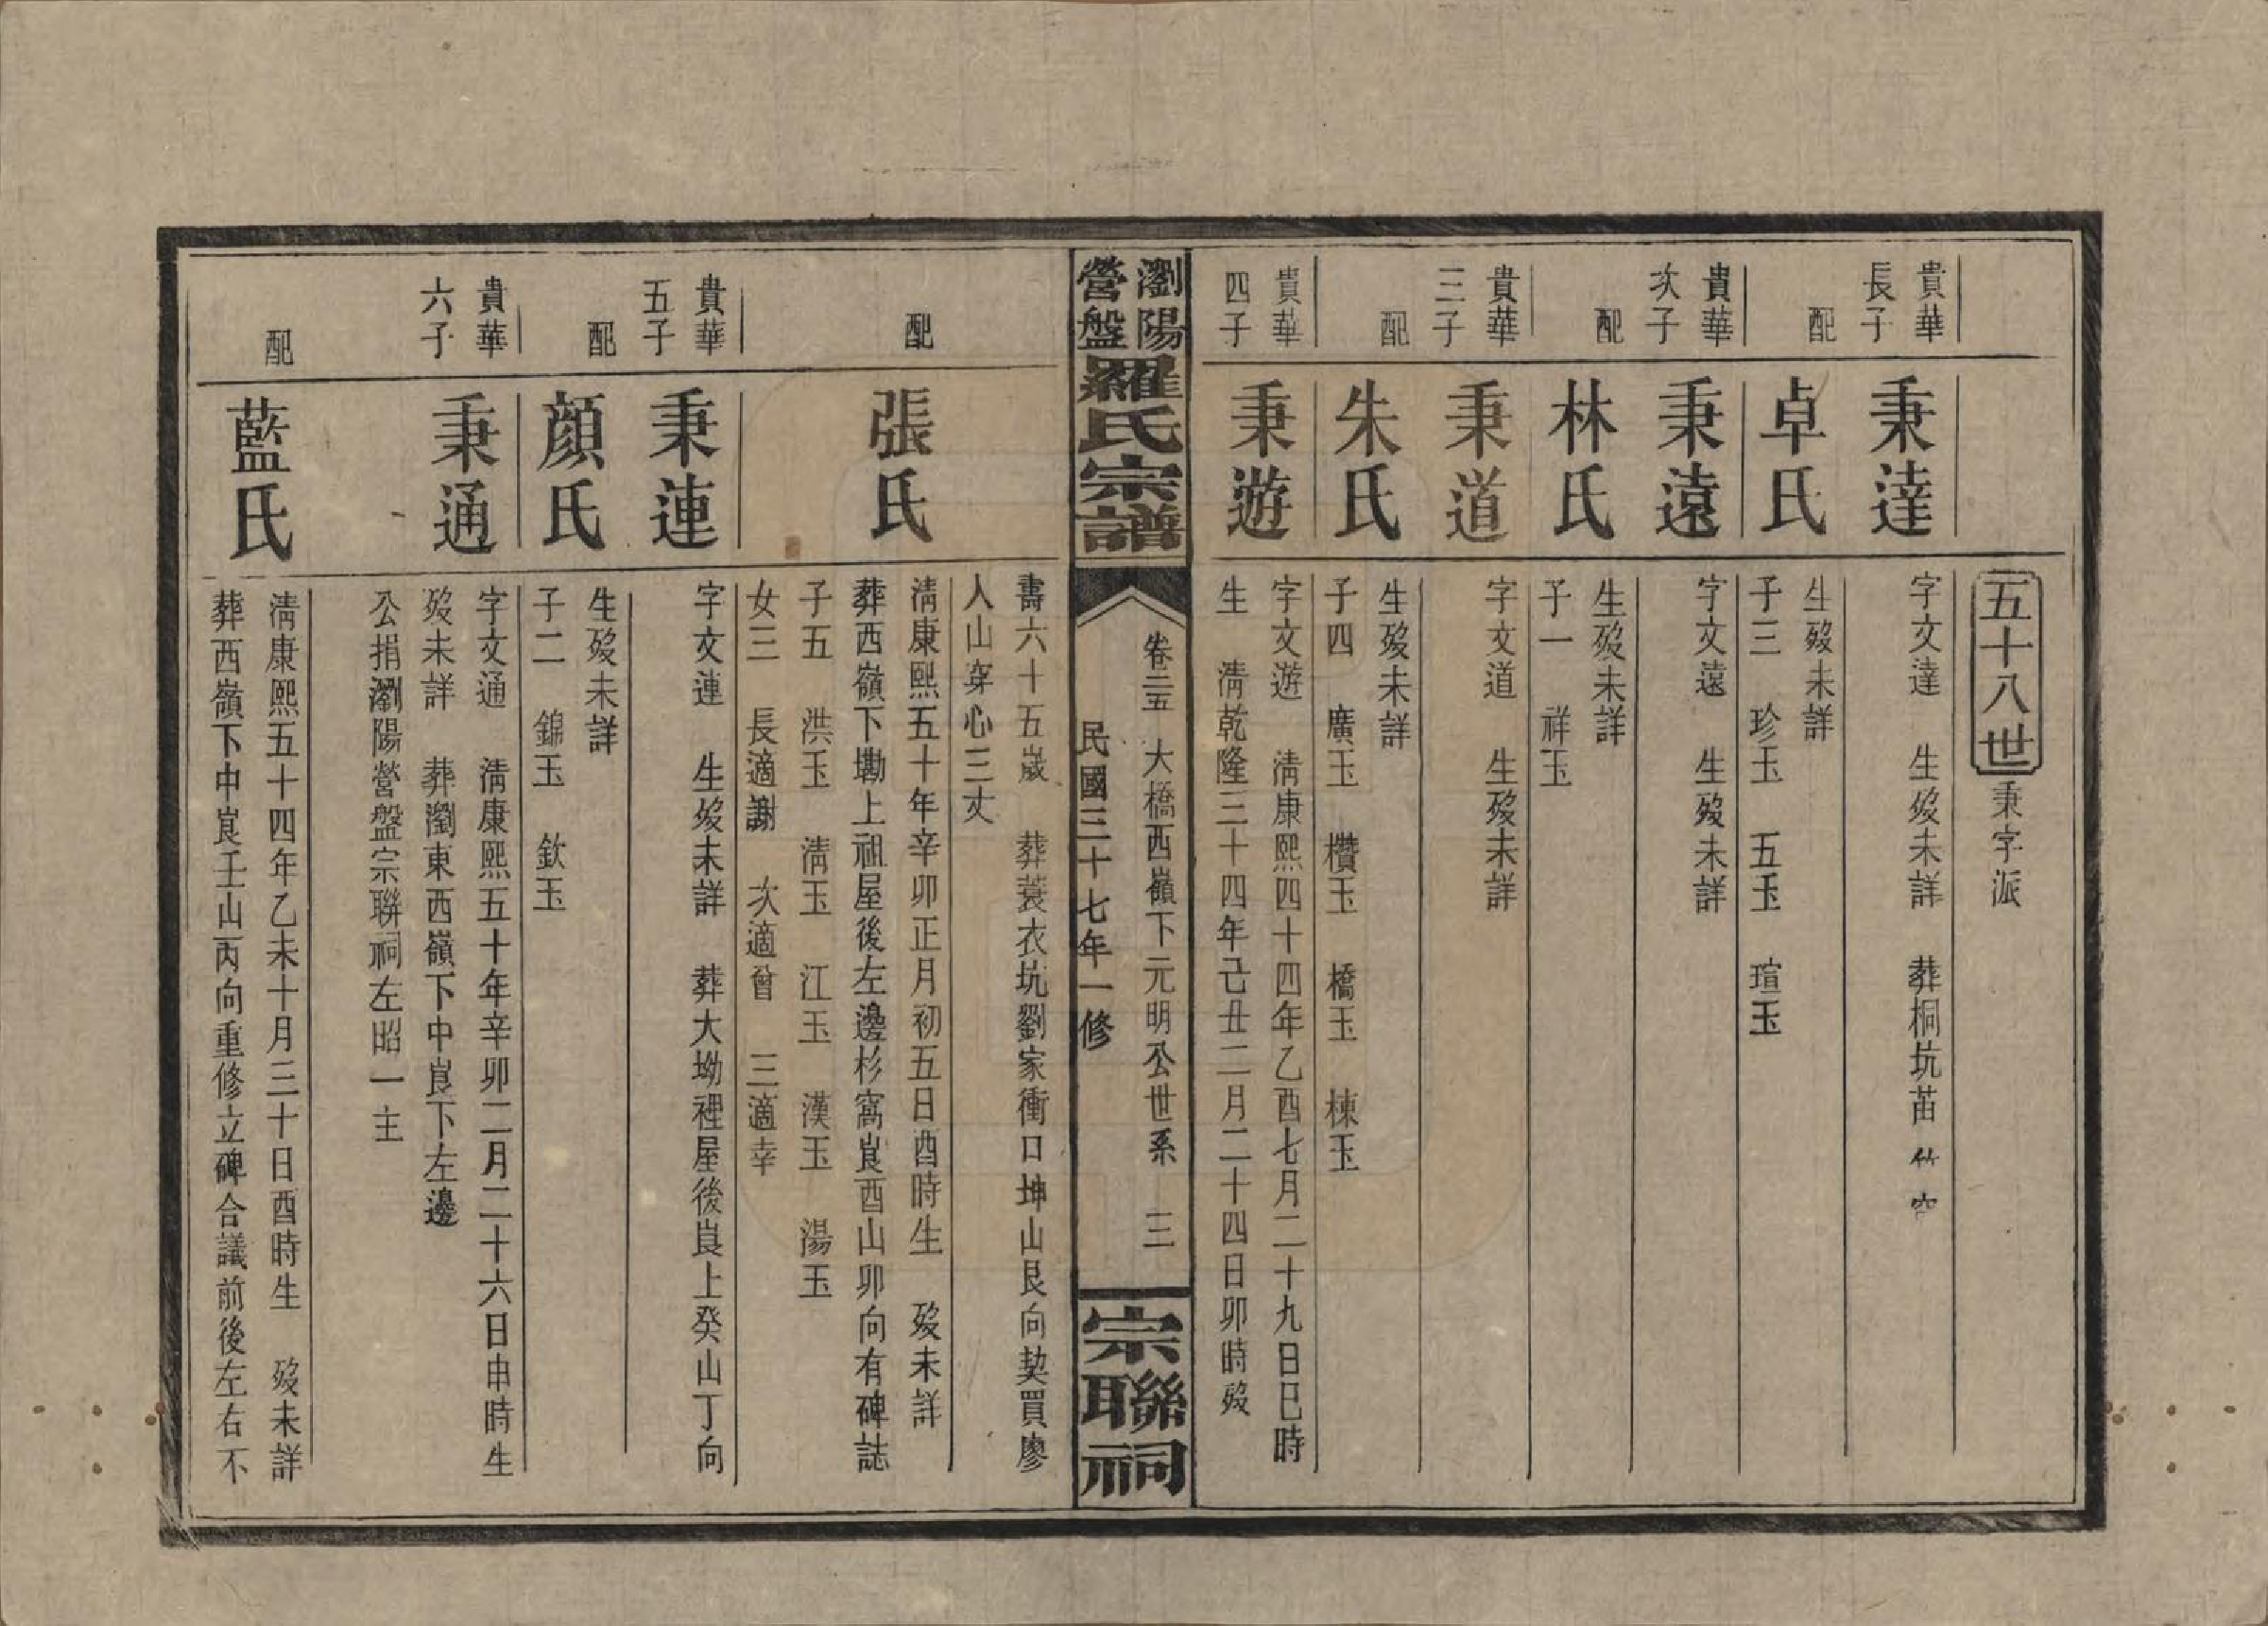 五十八世 秉字派
貴華長子 秉達 字文達 生歿未詳 葬桐坑苗竹窄
配 卓氏 生歿未詳
子三 珍玉 五玉 瑄玉
貴華次子 秉遠 字文遠 生歿未詳
配 林氏 生歿未詳
子一 祥玉
貴華三子 秉道 字文道 生歿未詳
配 朱氏 生歿未詳
子四 廣玉 欑玉 橋玉 棟玉
貴華四子 秉遊 字文遊 淸康熙四十四年乙酉七月二十九日巳時
生 淸乾隆三十四年己丑二月二十四日卯時歿
瀏陽營盤羅氏宗譜 卷二五 大橋西嶺下元明公世系 三 宗聯祠
民國三十七年一修
壽六十五嵗 葬蓑衣坑劉家衝口坤山艮向契買廖
人山穿心三丈
配 張氏 淸康熙五十年辛卯正月初五日酉時生 歿未詳
葬西嶺下墈上祖屋後左邊杉窩崀酉山卯向有碑誌
子五 洪玉 淸玉 江玉 漢玉 湯玉
女三 長適謝 次適曾 三適幸
貴華五子 秉連 字文連 生歿未詳 葬大坳裡屋後崀上癸山丁向
配 顔氏 生歿未詳
子二 錦玉 欽玉
貴華六子 秉通 字文通 淸康熙五十年辛卯二月二十六日申時生
歿未詳 葬瀏東西嶺下中崀下左邊
公捐瀏陽營盤宗聯祠左昭一主
配 藍氏 淸康熙五十四年乙未十月三十日酉時生 歿未詳
葬西嶺下中崀壬山丙向重修立碑合議前後左右不